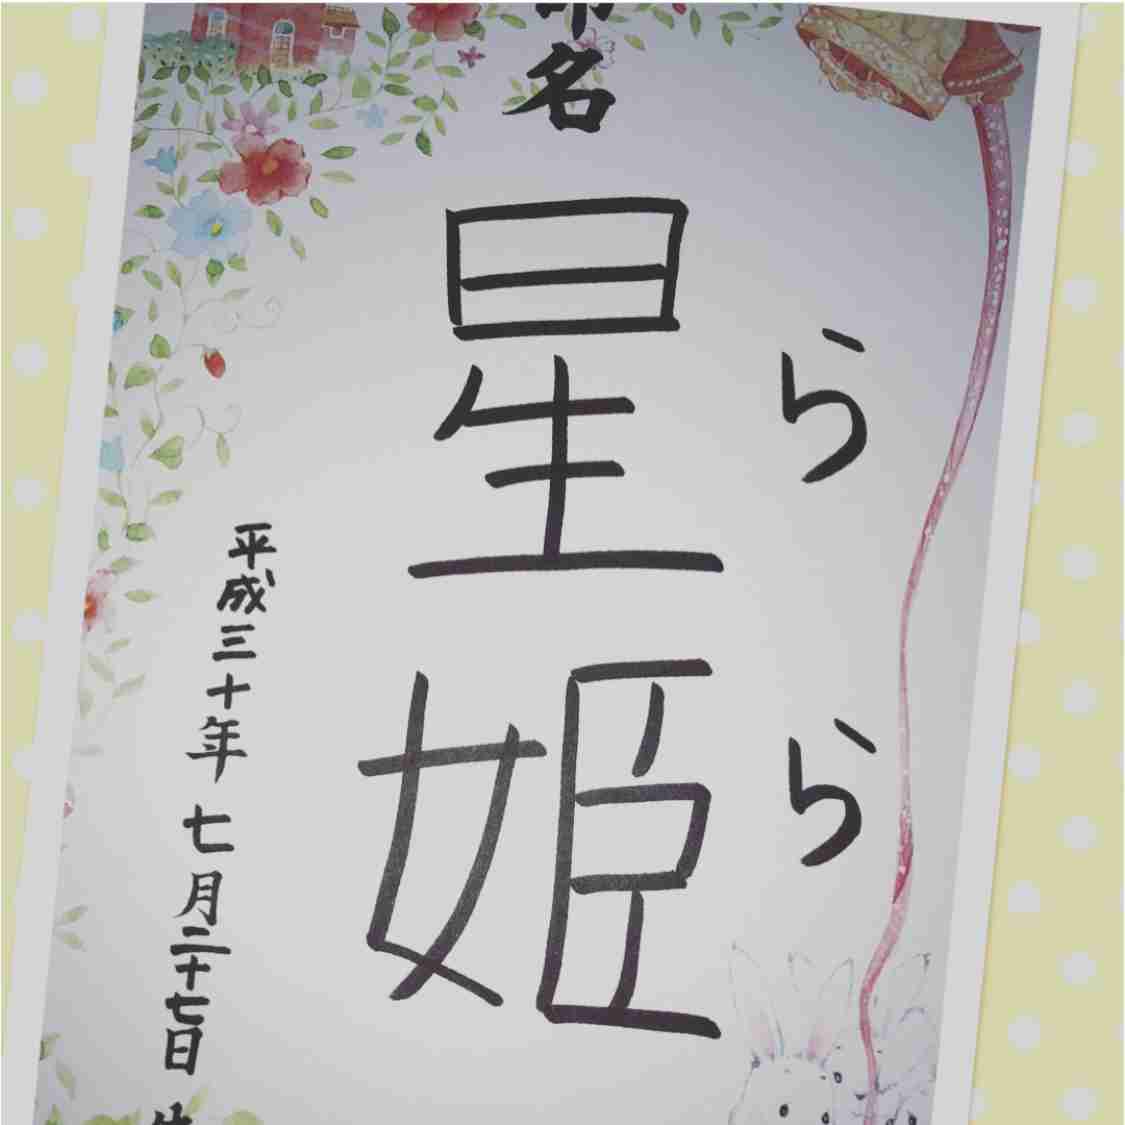 命名
星姫
らら
平成三十年 七月二十七日 生